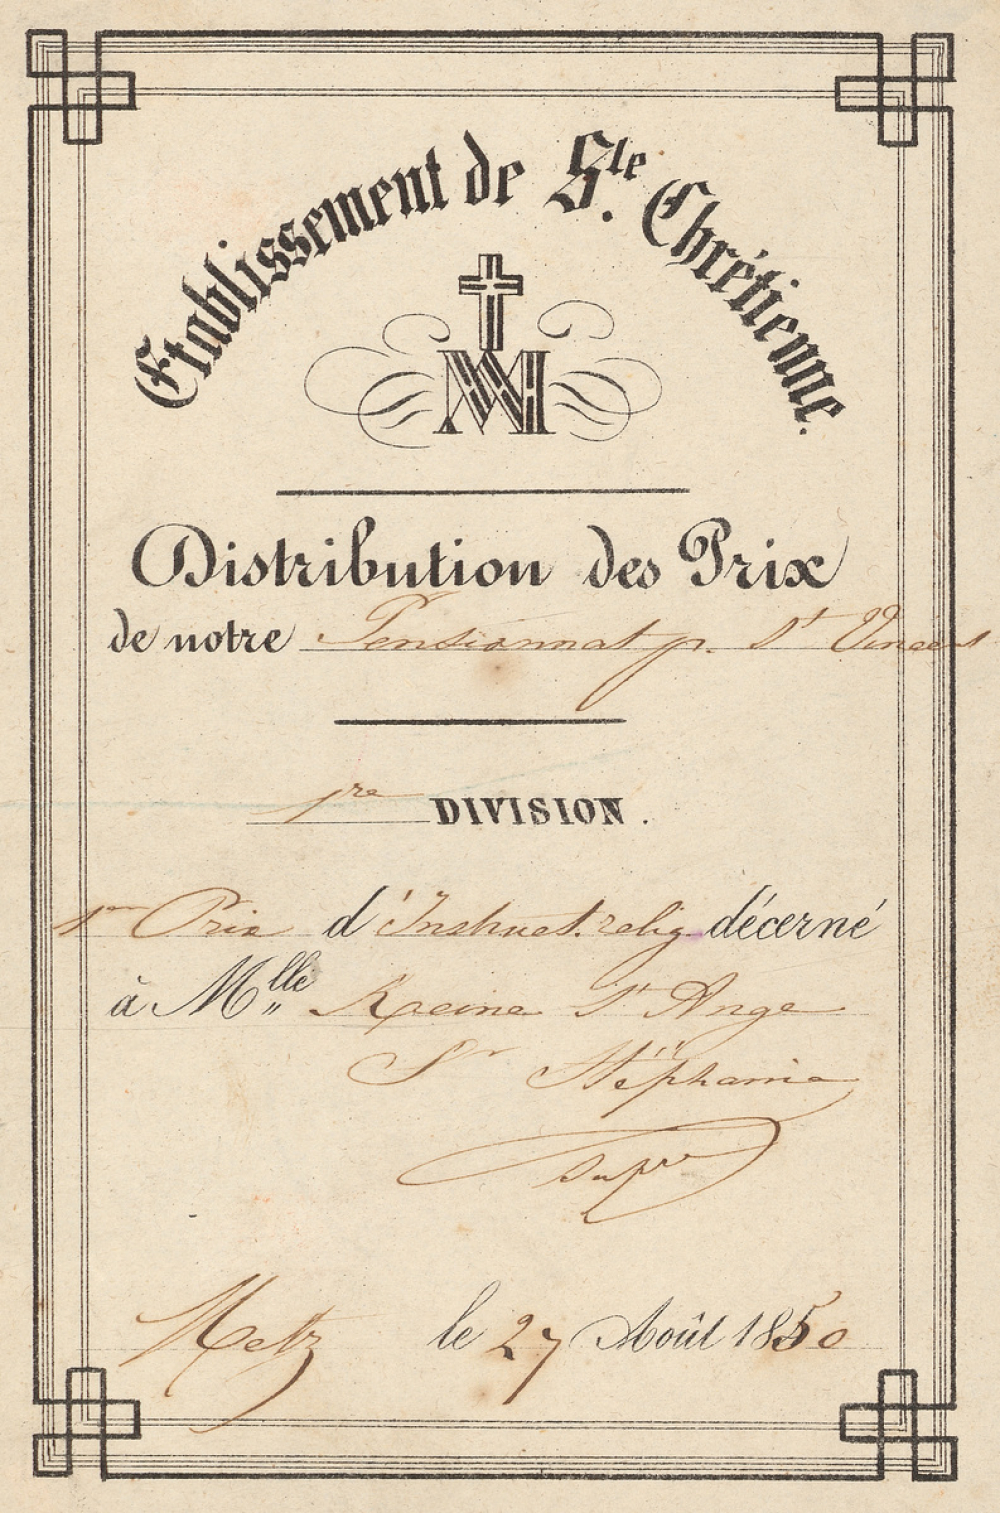 Etablissement de Ste. Chrétienne.
Distribution des Prix
de notre Pensionnat pr. St Vincent
1re DIVISION.
1er Prix d'Instruct. relig. décerné
à Mlle Reine St Ange
Sr Stéphanie
Supre
Metz le 27 Août 1850